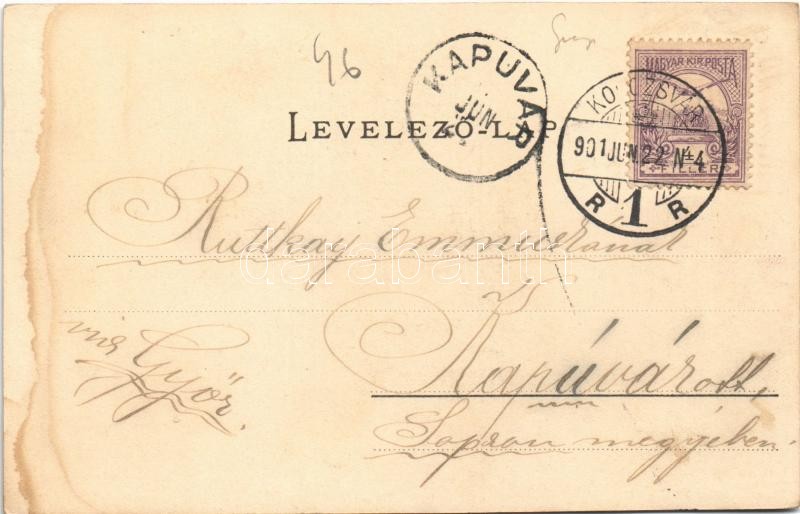 96
KAPUVÁR
JUN
MAGYAR KIR. POSTA
4
FILLÉR
KOLOZSVÁR
901 JUN. 22 N 4
R 1 R
LEVELEZŐ-LAP
Ruttkay Emmuskának
darabanth
Kapúvárott,
via Győr.
Sopron megyében.